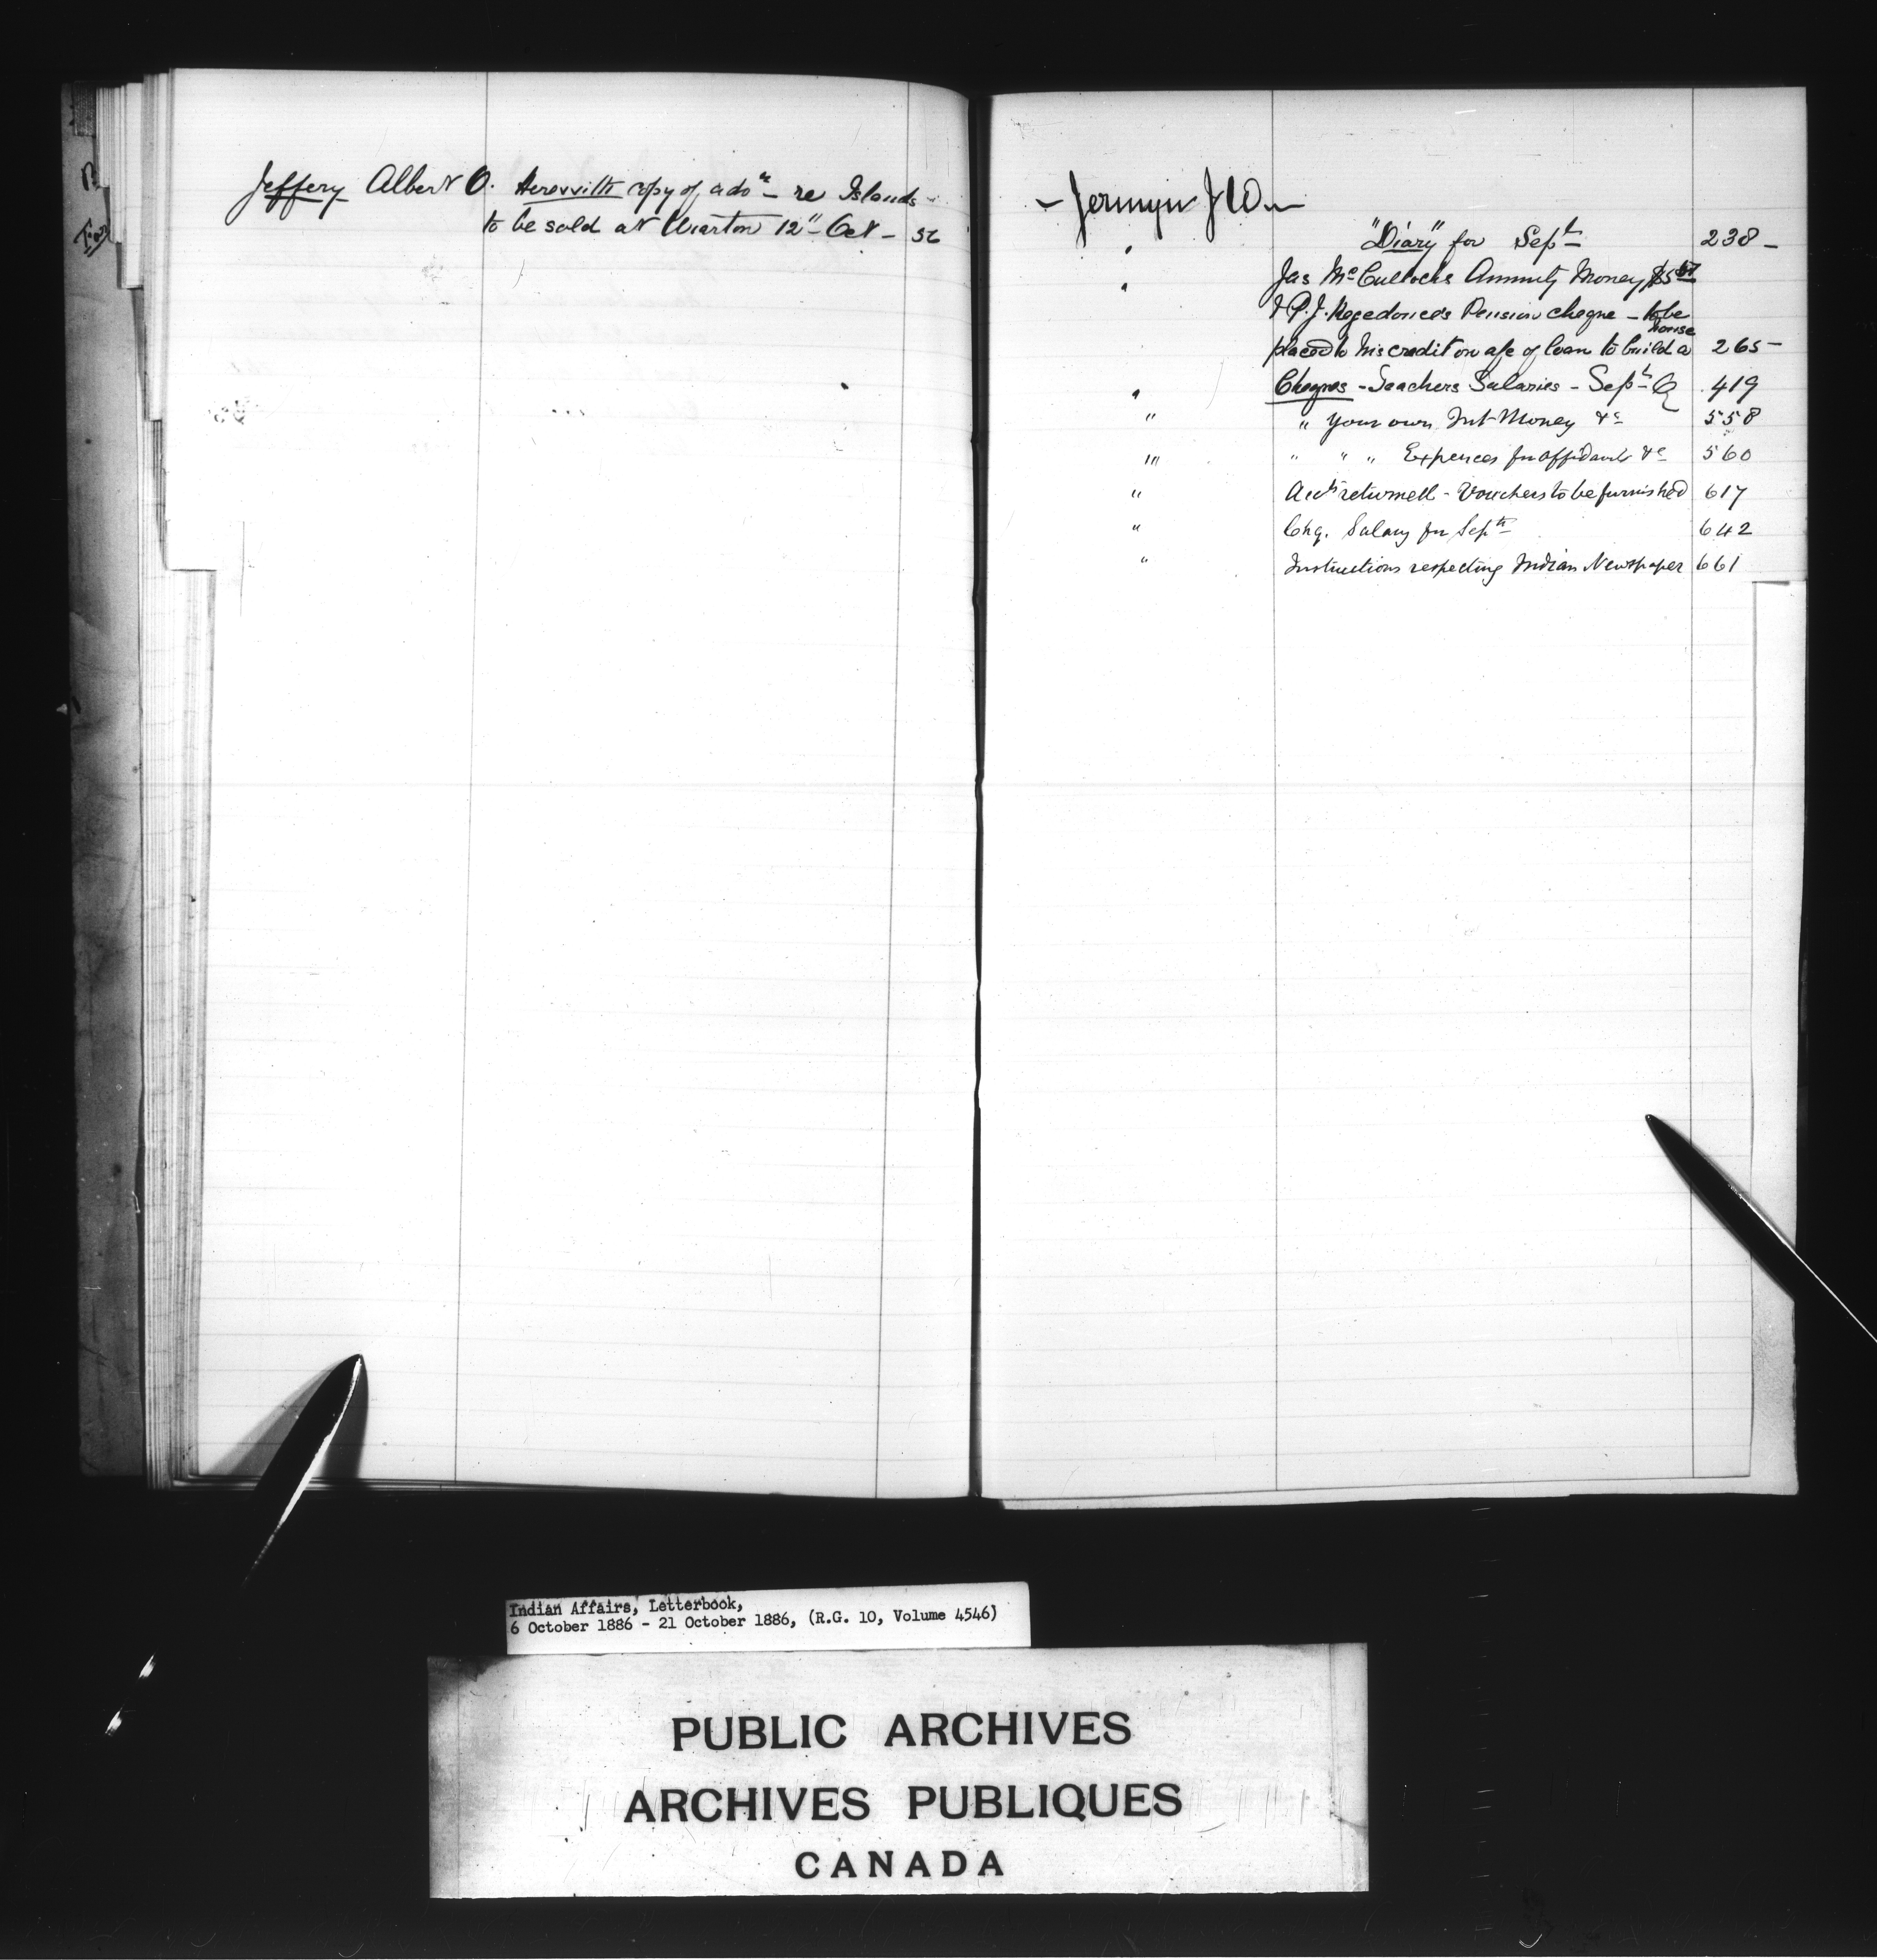 Jeffery Albert O. Herewith copy of adv^t re Islands
to be sold at Wiarton 12" Oct - 56
- Jermyn J W -
" "Diary" for Sept 238 -
" Jas McCullochs Annuity Money $5
& P. J. Kegedonce's Pension cheque - to be
placed to his credit on a/c of loan to build a house 265 -
" Cheques - Teachers Salaries - Sept Q 419
" " Your own Int Money &c 558
" " " " Expences for affidavits &c 560
" Accts returned - Vouchers to be furnished 617
" Chq. Salary for Septr 642
" Instructions respecting Indian Newspaper 661
Indian Affairs, Letterbook,
6 October 1886 - 21 October 1886, (R.G. 10, Volume 4546)
PUBLIC ARCHIVES
ARCHIVES PUBLIQUES
CANADA